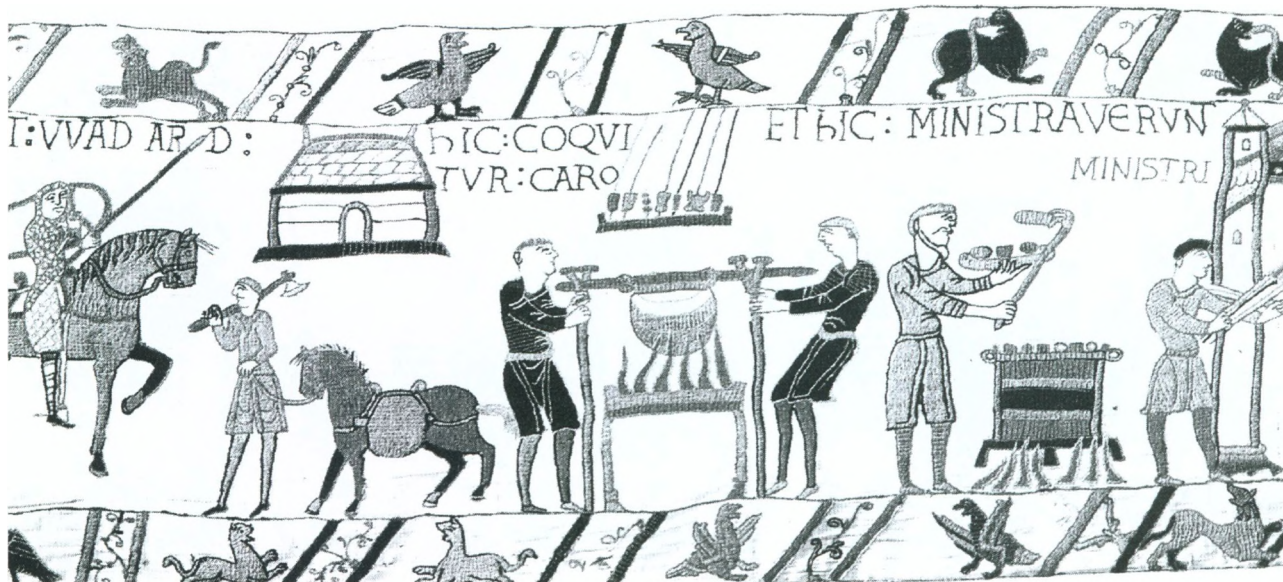 T: VVAD ARD:
hIC: COQVI
TVR: CARO
ET hIC: MINISTRAVERVN
MINISTRI